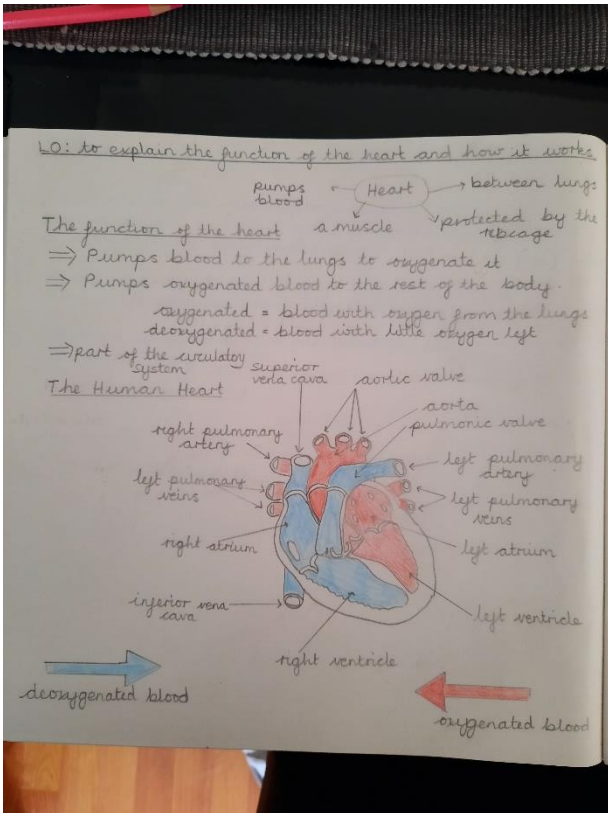 LO: to explain the function of the heart and how it works
pumps
blood
Heart
between lungs
a muscle
protected by the
ribcage
The function of the heart
⇒ Pumps blood to the lungs to oxygenate it
⇒ Pumps oxygenated blood to the rest of the body.
oxygenated = blood with oxygen from the lungs
deoxygenated = blood with little oxygen left
⇒ part of the circulatory
system
The Human Heart
superior
vena cava
aortic valve
aorta
pulmonic valve
right pulmonary
artery
left pulmonary
artery
left pulmonary
veins
left pulmonary
veins
right atrium
left atrium
inferior vena
cava
left ventricle
right ventricle
deoxygenated blood
oxygenated blood